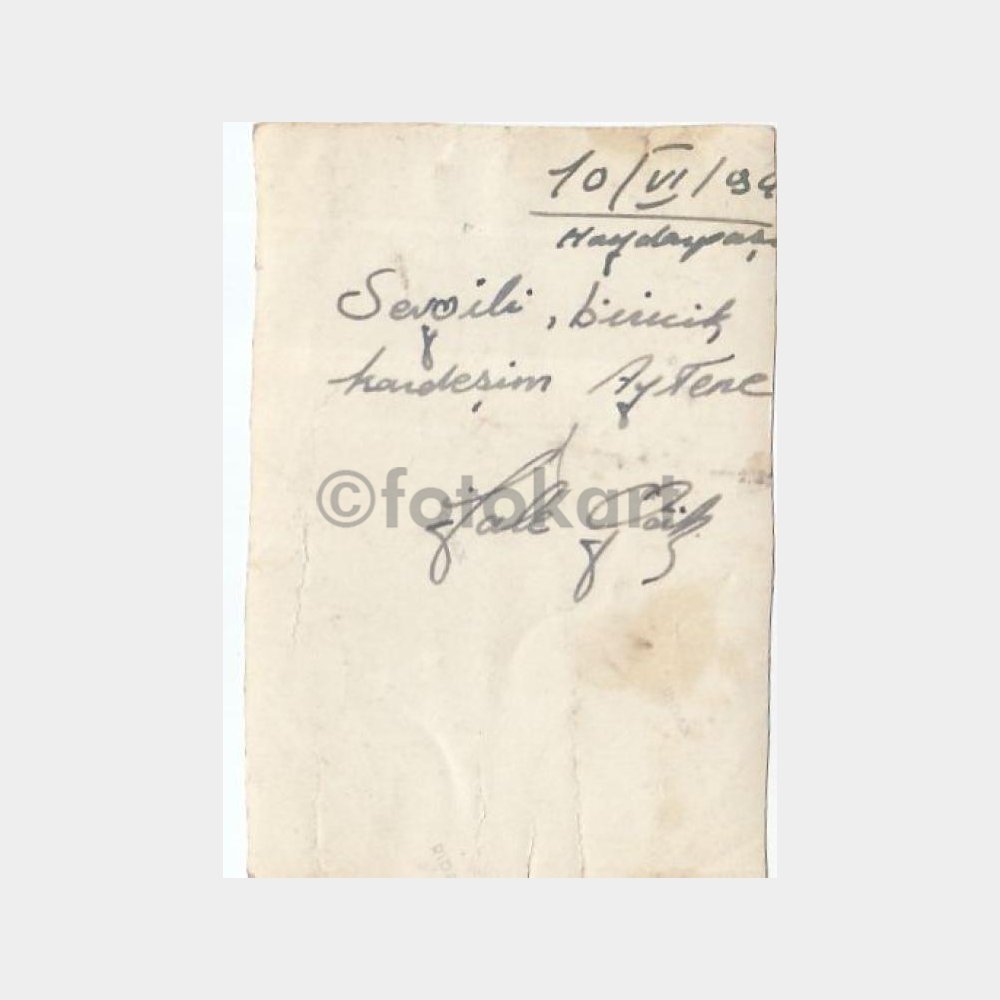 10/VI/94
Haydarpaşa
Sevgili, biricik
kardeşim Aytene
Jale
©fotokart